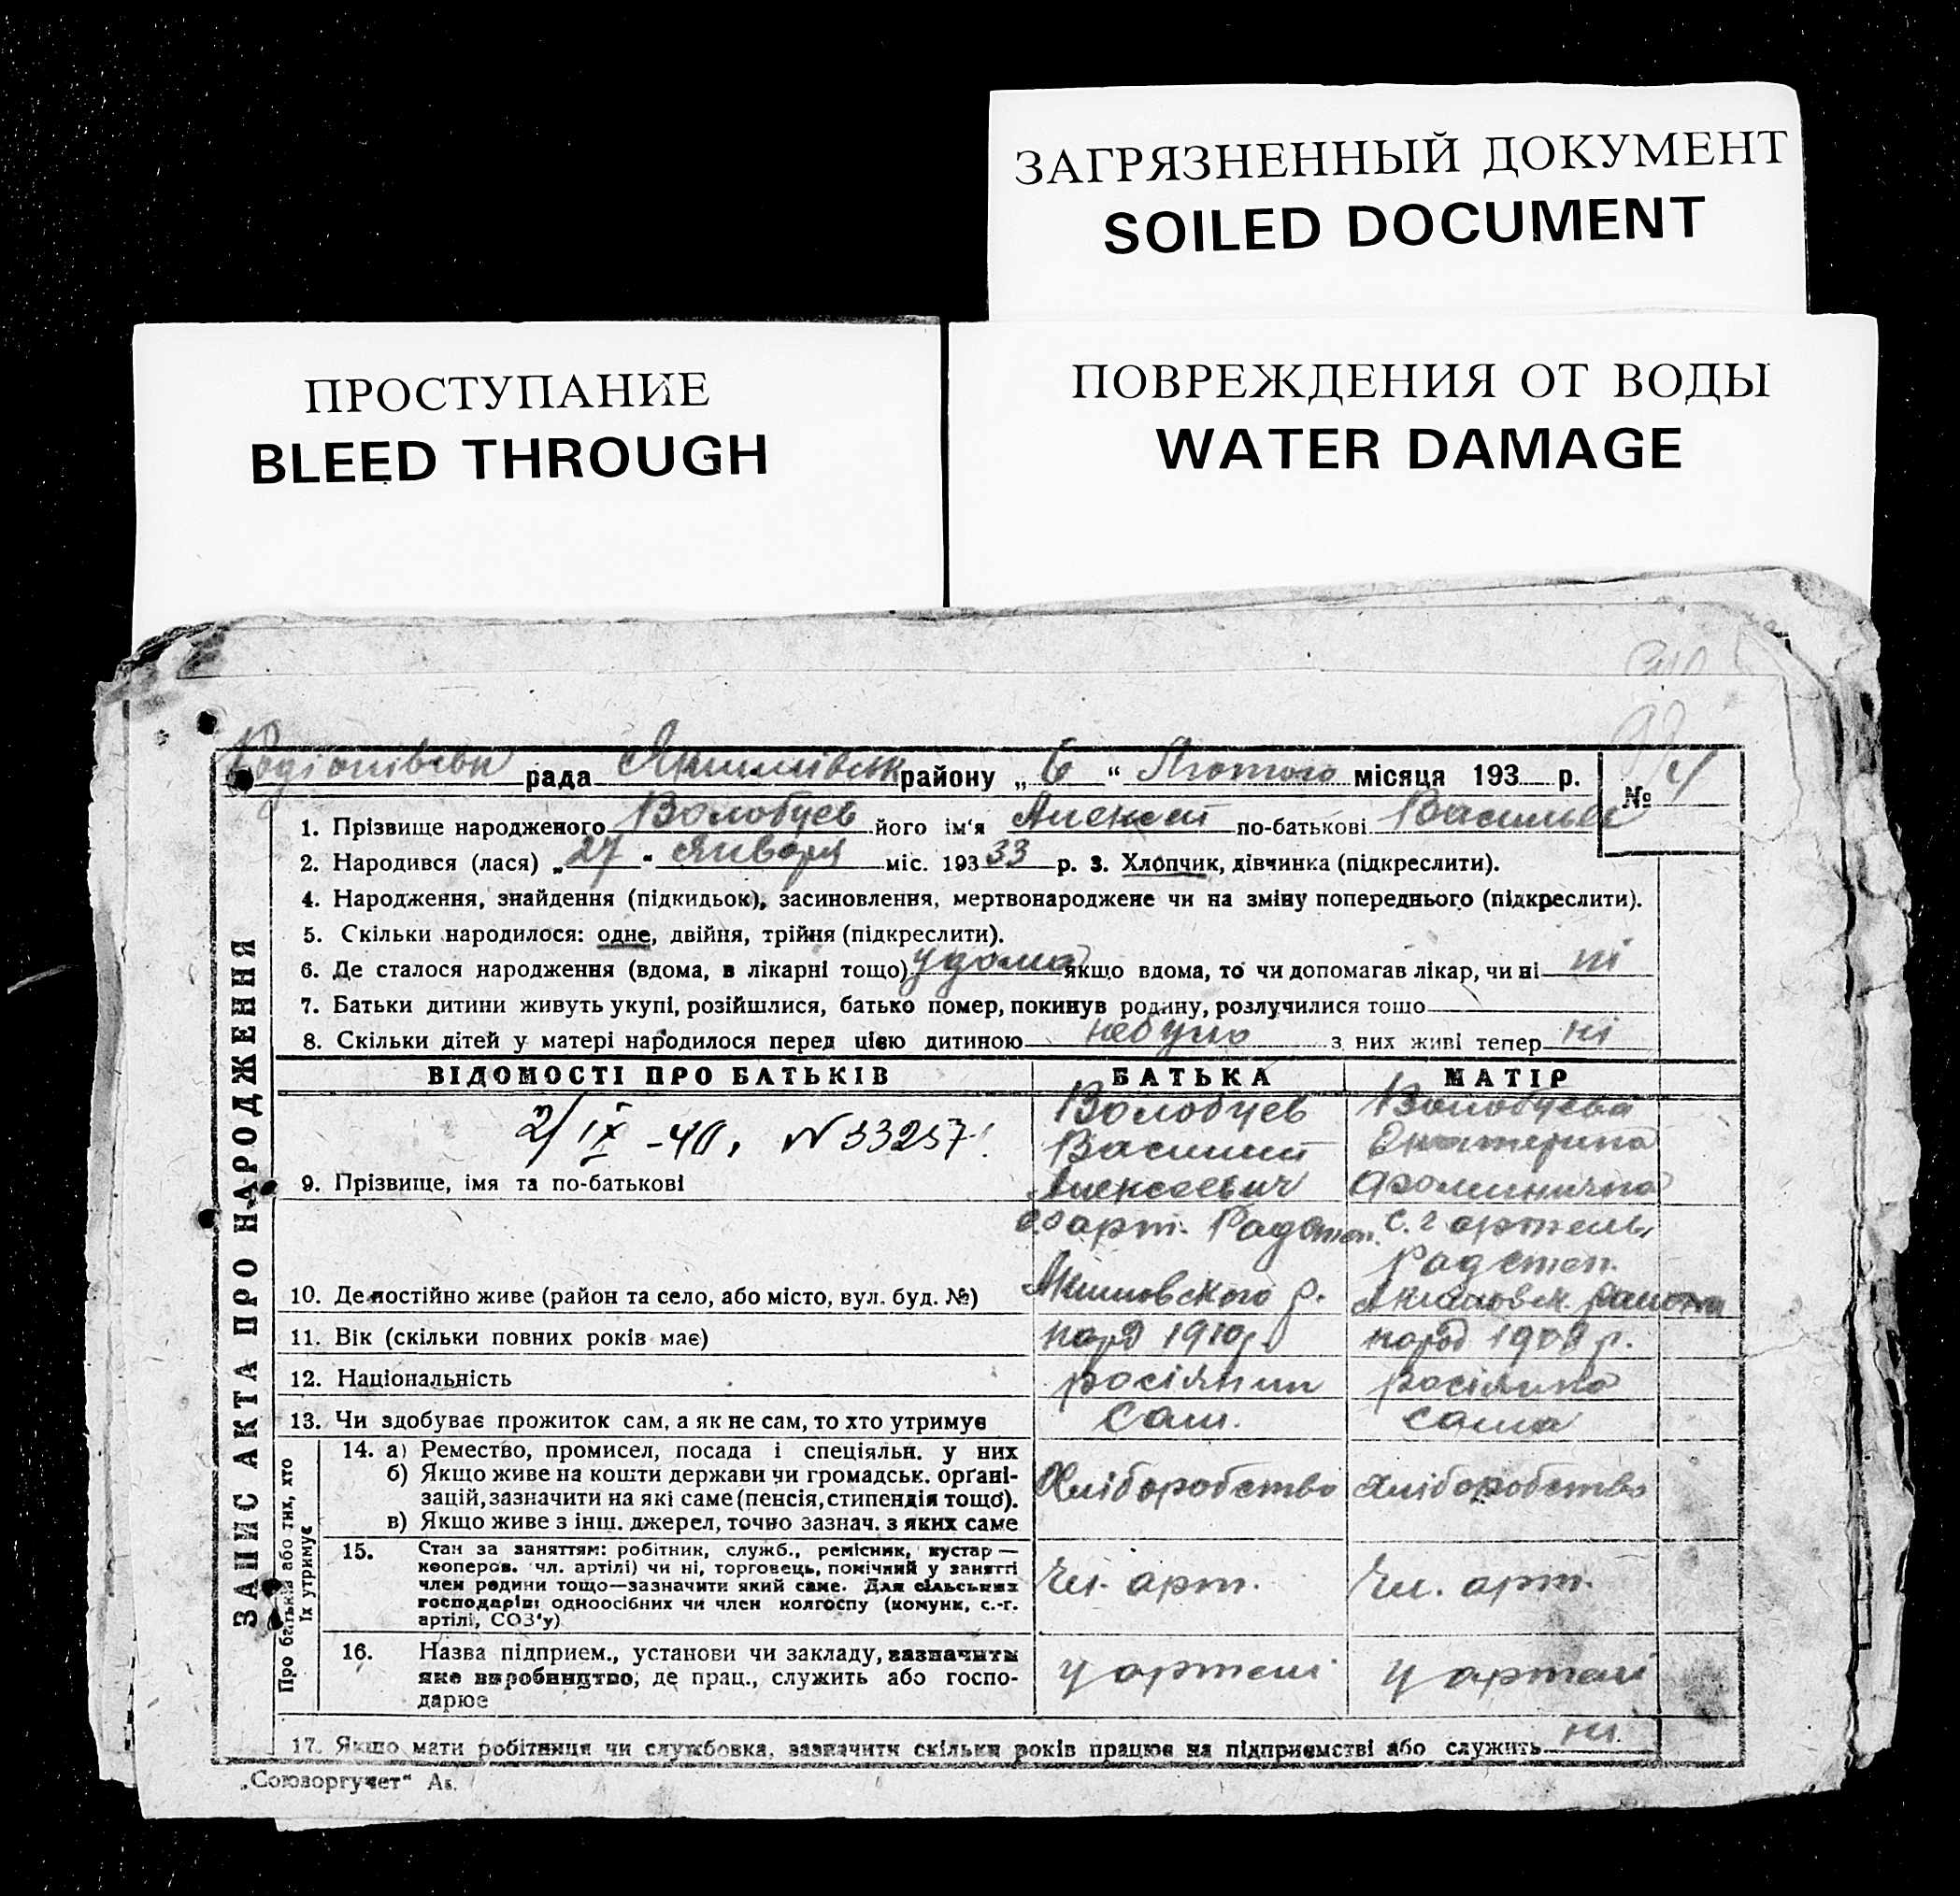 ЗАГРЯЗНЕННЫЙ ДОКУМЕНТ
SOILED DOCUMENT
ПРОСТУПАНИЕ
BLEED THROUGH
ПОВРЕЖДЕНИЯ ОТ ВОДЫ
WATER DAMAGE
рада Якимівськ району „ 6 “ Лютого місяця 193 р. № 4
1. Прізвище народженого Волобуев його ім'я Алексей по-батькові Васильев
2. Народився (лася) „ 27 “ Января міс. 193 33 р. 3. Хлопчик, дівчинка (підкреслити).
4. Народження, знайдення (підкидьок), засиновлення, мертвонароджене чи на зміну попереднього (підкреслити).
5. Скільки народилося: одне, двійня, трійня (підкреслити).
6. Де сталося народження (вдома, в лікарні тощо) удома якщо вдома, то чи допомагав лікар, чи ні ні
7. Батьки дитини живуть укупі, розійшлися, батько помер, покинув родину, розлучилися тощо
8. Скільки дітей у матері народилося перед цією дитиною небуло з них живі тепер ні
ЗАПИС АКТА ПРО НАРОДЖЕННЯ
ВІДОМОСТІ ПРО БАТЬКІВ БАТЬКА МАТІР
2/IX -40, N 33257
9. Прізвище, імя та по-батькові
Волобуев
Василий
Алексеевич
Волобуева
Екатерина
10. Де постійно живе (район та село, або місто, вул. буд. №)
арт. Радстеп.
Акимовского р.
с. г артель
Радстеп.
Акимовск. района
11. Вік (скільки повних років має) народ 1910р народ 1909 р.
12. Національність росіянин росіянка
13. Чи здобуває прожиток сам, а як не сам, то хто утримує сам. сама
Про батька або тих, хто
їх утримує
14. а) Ремество, промисел, посада і спеціяльн. у них
б) Якщо живе на кошти держави чи громадськ. орґані-
зацій, зазначити на які саме (пенсія, стипендія тощо).
в) Якщо живе з інш. джерел, точно зазнач. з яких саме
Хліборобство хліборобство
15. Стан за заняттям: робітник, служб., ремісник, кустар —
кооперов. чл. артілі) чи ні, торговець, помічний у занятті
член родини тощо—зазначити який саме. Для сільських
господарів: одноосібних чи член колгоспу (комуни, с.-г.
артілі, СОЗ'у)
Чл. арт. Чл. арт.
16. Назва підприєм., установи чи закладу, зазначити
яке виробництво, де прац., служить або госпо-
дарює
у артелі у артелі
17. Якщо мати робітниця чи службовка, зазначити скільки років працює на підприємстві або служить ні.
„Союзоргучет“